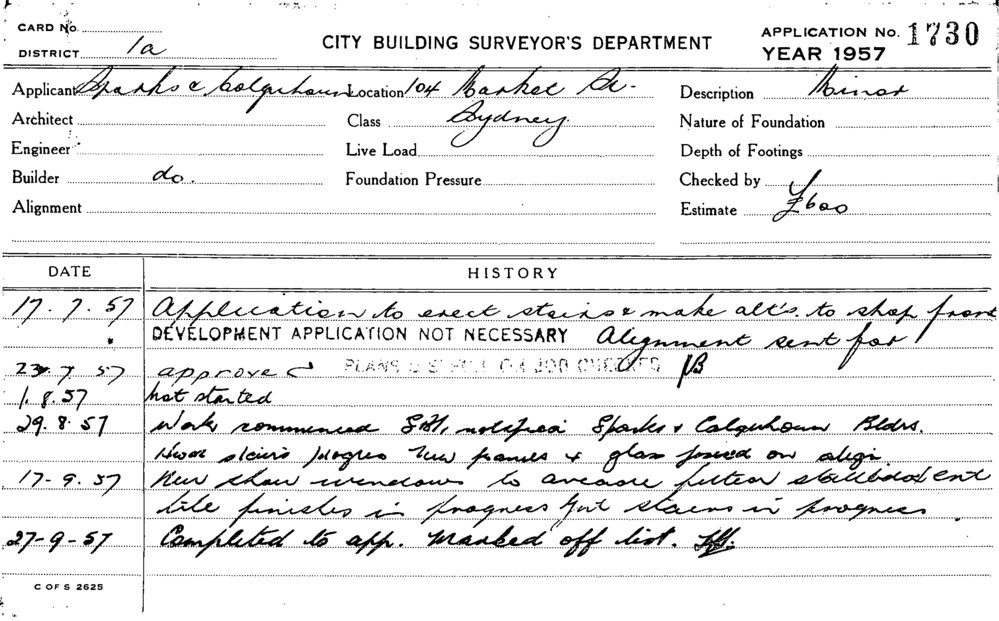 CARD No.
DISTRICT 1a
CITY BUILDING SURVEYOR'S DEPARTMENT
APPLICATION No. 1730
YEAR 1957
Applicant Sparks & Colquhoun Location 104 Market St.
Description Minor
Architect
Class Sydney
Nature of Foundation
Engineer
Live Load
Depth of Footings
Builder do.
Foundation Pressure
Checked by
Alignment
Estimate £600
DATE HISTORY
17.7.57 Application to erect stairs & make alt's. to shop front
DEVELOPMENT APPLICATION NOT NECESSARY Alignment sent for
23.7.57 approved PLANS ON JOB CHECKED
1.8.57 Not started
29.8.57 Work commenced notified Sparks & Colquhoun Bldrs.
stairs progress New frames & glass on align
17-9.57 New show windows to arcade stallboard ent
tile finishes in progress stairs in progress.
27-9-57 Completed to app. Marked off list.
C OF S 2625